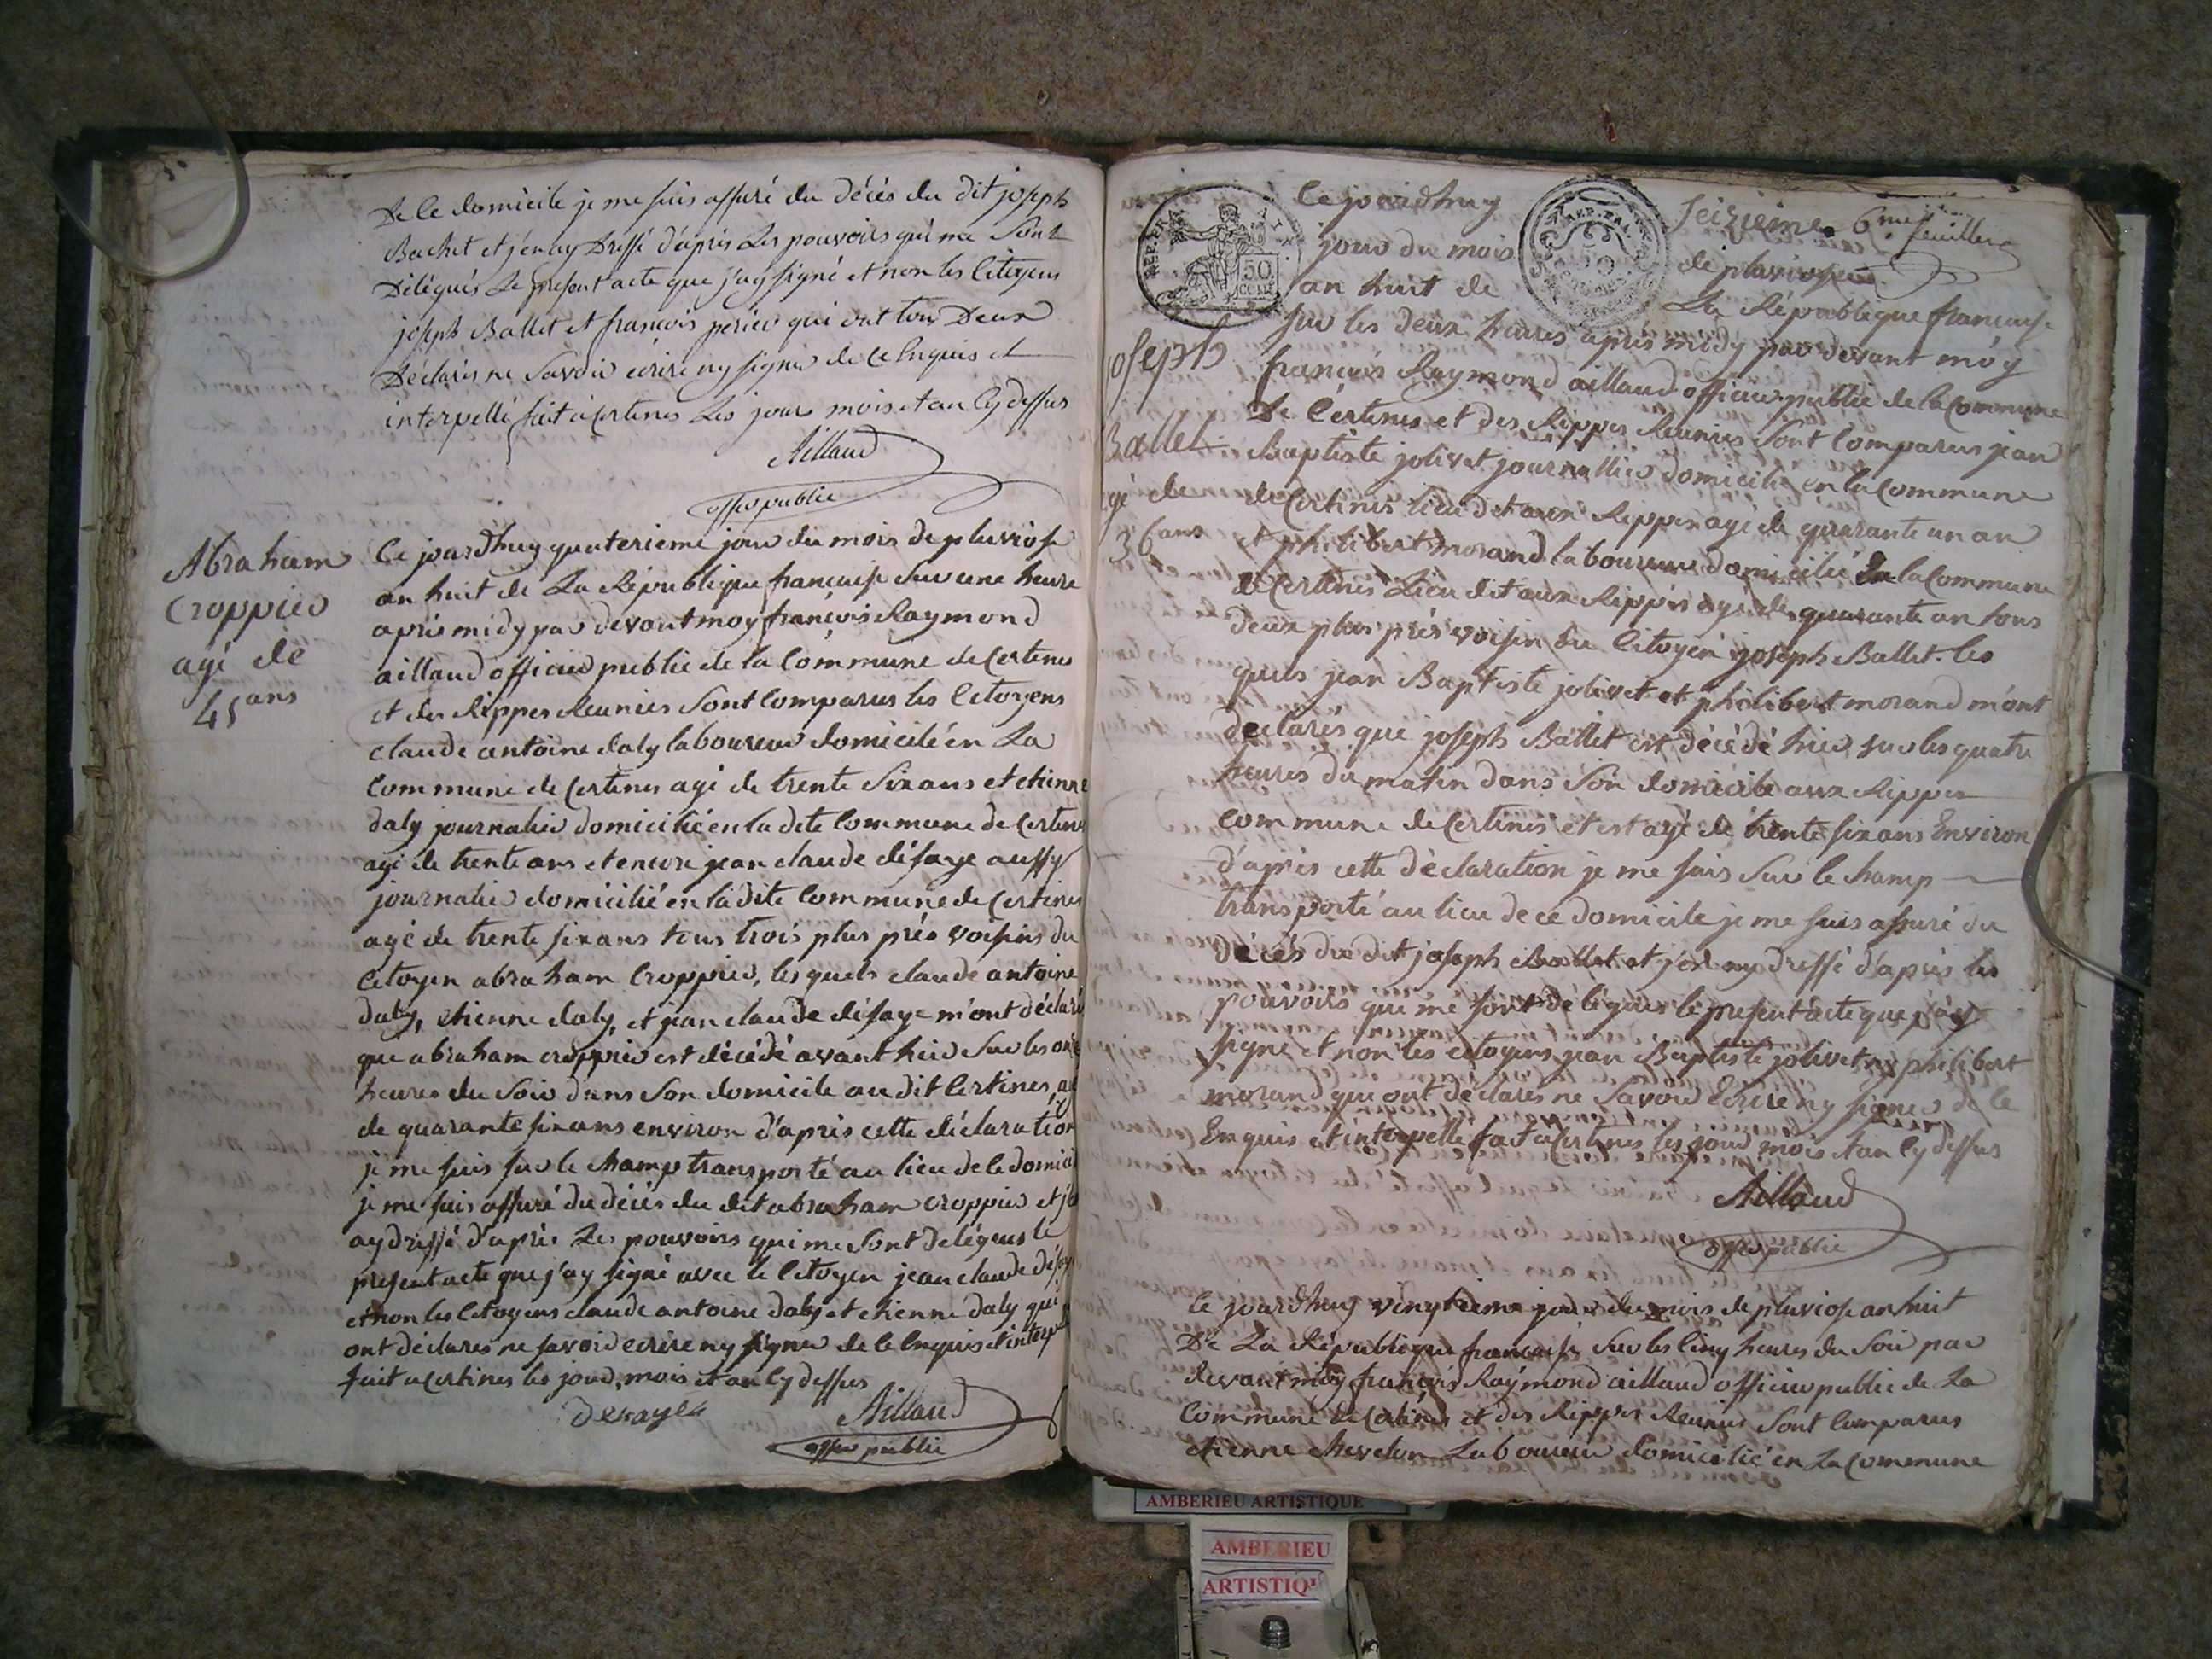 De Ce domicile je me suis assuré du décès du dit joseph
Bachet et j'en ay Dressé d'après Les pouvoirs qui me Sont
Délégués Le présent acte que j'ay signé et non les Citoyens
joseph Ballet et françois perier qui ont tous Deux
Déclarés ne Savoir écrire ny signer de ce Enquis et
interpellé fait à Certines Les jour mois et an Cy dessus
Aillaud
offier public
Abraham
Croppier
agé de
45 ans
Ce jourdhuy quaterieme jour du mois de pluviose
an huit de La République francaise Sur une heure
après midy par devant moy françois Raymond
aillaud officier public de la Commune de Certines
et des Rippes Reunies Sont Comparus les Citoyens
claude antoine daly laboureur domicilié en La
Commune de Certines agé de trente Six ans et etienne
daly journalier domicilié en la dite Commune de Certines
agé de trente ans et encore jean claude défaye aussy
journalier domicilié en la dite Commune de Certines
agé de trente six ans tous trois plus près voisins du
Citoyen abraham Croppier, les quels claude antoine
daly, etienne daly, et jean claude défaye m'ont déclaré
que abraham croppier est décédé avant hier Sur les onze
heures du Soir dans Son domicile au dit Certines, ag
de quarante six ans environ d'après cette déclaration
je me suis sur le champ transporté au lieu de ce domici
je me suis assuré du décès du dit abraham croppier et j'e
ay dressé d'après Les pouvoirs qui me Sont Delégués le
present acte que j'ay signé avec le Citoyen jean claude défay
et non les Citoyens claude antoine daly et etienne daly qui
ont déclarés ne savoir ecrire ny signer de ce Enquis et interpel
fait a Certines les jour, mois et an Cy dessus
defaye Aillaud
offier public
Ce jourdhuy Seizieme 6me feuillet
jour du mois de pluviose
an huit de La République francaise
REP. FRA. 50 CENT
REP. FRA. 50
Sur les deux heures après midy par devant moy
françois Raymond aillaud officier public de la Commune
De Certines et des Rippes Reunies Sont Comparus jean
Baptiste jolivet journallier domicilié en la Commune
de Certines lieu dit aux Rippes agé de quarante un an
et philibert morand laboureur domicilié En la Commune
de Certines Lieu dit aux Rippes agé de quarante un tous
deux plus près voisin du Citoyen joseph Ballet. les
quels jean Baptiste jolivet et philibert morand m'ont
déclarés que joseph Ballet est décédé hier sur les quatre
heures du matin dans Son domicile aux Rippes
Commune de Certines et est agé de trente six ans Environ
d'après cette déclaration je me suis Sur le champ
transporté au lieu de ce domicile je me suis assuré du
décés du dit joseph Ballet et j'en ay dressé d'après les
pouvoirs qui me sont délégués le present acte que j'ay
signé et non les citoyens jean Baptiste jolivet ny philibert
morand qui ont déclarés ne Savoir Ecrire ny signer de ce
Enquis et interpellé fait a Certines les jour mois et an Cy dessus
Aillaud
offier public
joseph
Ballet
gé de
36 ans
Ce jourdhuy vingtieme jour du mois de pluviose an huit
De La République francaise Sur les Cinq heures du Soir par
devant moy françois Raymond aillaud officier public de La
Commune de Certines et des Rippes Reunies Sont Comparus
etienne chevelon Laboureur domicilié en La Commune
AMBERIEU ARTISTIQUE
AMBERIEU
ARTISTIQ